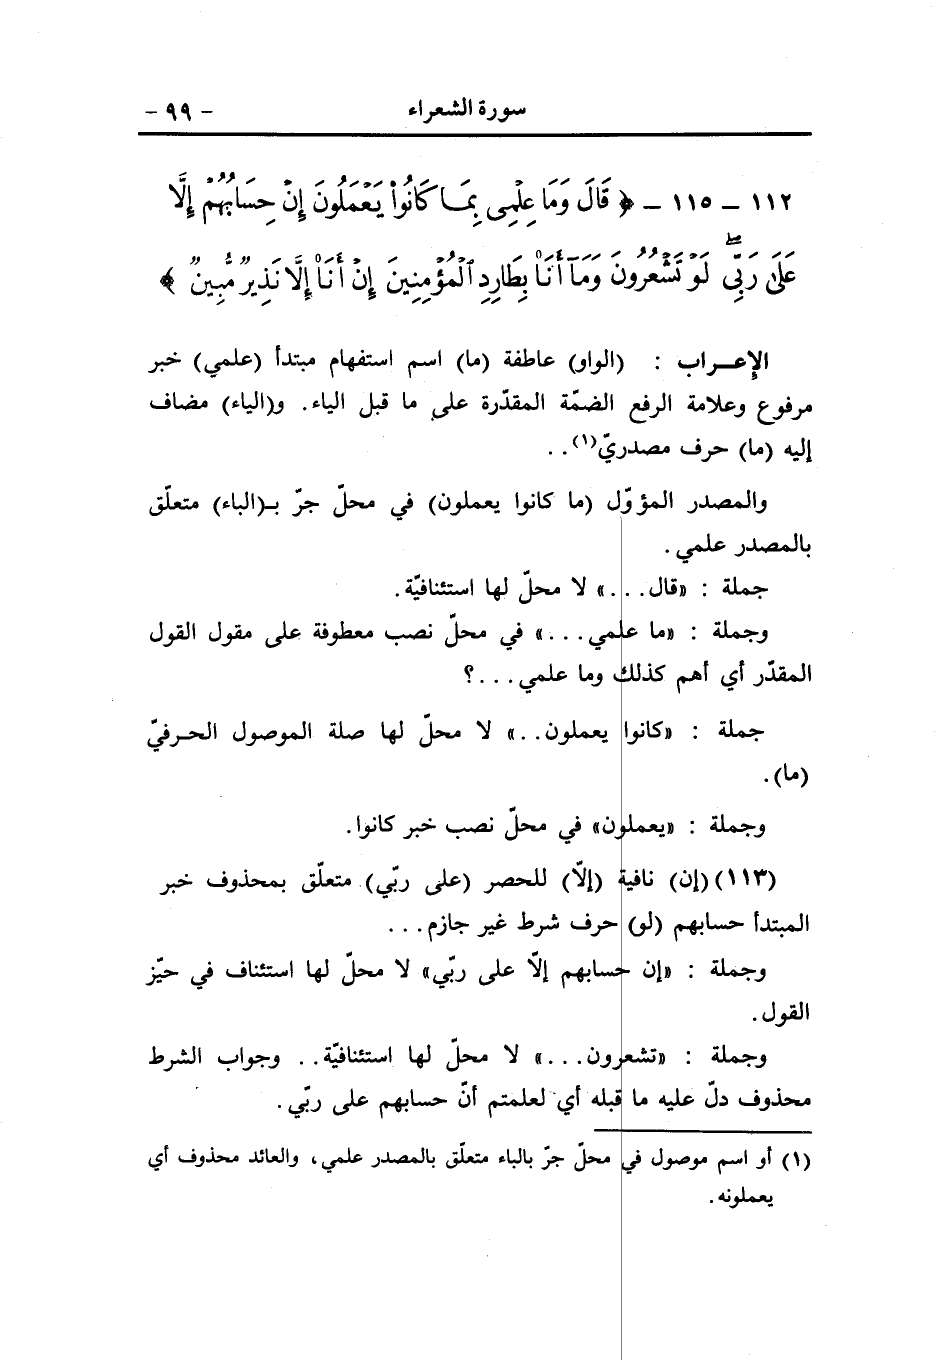 سورة الشعراء - ٩٩ -
١١٢ - ١١٥ - ﴿ قَالَ وَمَا عِلْمِى بِمَا كَانُوا۟ يَعْمَلُونَ إِنْ حِسَابُهُمْ إِلَّا
عَلَىٰ رَبِّى ۖ لَوْ تَشْعُرُونَ وَمَآ أَنَا۠ بِطَارِدِ ٱلْمُؤْمِنِينَ إِنْ أَنَا۠ إِلَّا نَذِيرٌ مُّبِينٌ ﴾
الإعـراب : (الواو) عاطفة (ما) اسم استفهام مبتدأ (علمي) خبر
مرفوع وعلامة الرفع الضمّة المقدّرة على ما قبل الياء. و(الياء) مضاف
إليه (ما) حرف مصدريّ(١)..
والمصدر المؤوّل (ما كانوا يعملون) في محلّ جرّ بـ(الباء) متعلّق
بالمصدر علمي.
جملة : «قال...» لا محلّ لها استئنافيّة.
وجملة : «ما علمي...» في محلّ نصب معطوفة على مقول القول
المقدّر أي أهم كذلك وما علمي...؟
جملة : «كانوا يعملون..» لا محلّ لها صلة الموصول الحـرفيّ
(ما).
وجملة : «يعملون» في محلّ نصب خبر كانوا.
(١١٣) (إن) نافية (إلّا) للحصر (على ربّي) متعلّق بمحذوف خبر
المبتدأ حسابهم (لو) حرف شرط غير جازم...
وجملة : «إن حسابهم إلّا على ربّي» لا محلّ لها استئناف في حيّز
القول.
وجملة : «تشعرون...» لا محلّ لها استئنافيّة.. وجواب الشرط
محذوف دلّ عليه ما قبله أي لعلمتم أنّ حسابهم على ربّي.
(١) أو اسم موصول في محلّ جرّ بالباء متعلّق بالمصدر علمي، والعائد محذوف أي
يعملونه.